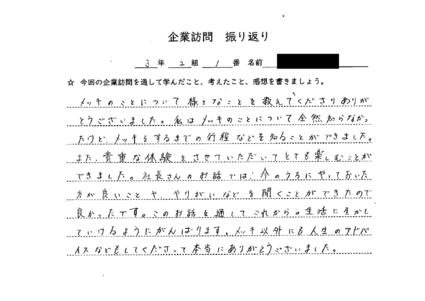 企業訪問 振り返り
3年 2組 1番 名前
☆ 今回の企業訪問を通して学んだこと、考えたこと、感想を書きましょう。
メッキのことについて様々なことを教えてくださりありが
とうございました。私はメッキのことについて全然知らなかっ
たけど、メッキをするまでの行程などを知ることができました。
また、貴重な体験をさせていただいてとても楽しむことが
できました。社長さんのお話では、今のうちにやっておいた
方が良いことや、やりがいなどを聞くことができたので
良かったです。このお話を通してこれからの生活に生かし
ていけるようにがんばります。メッキ以外にも人生のアドバ
イスなどもしてくださって本当にありがとうございました。